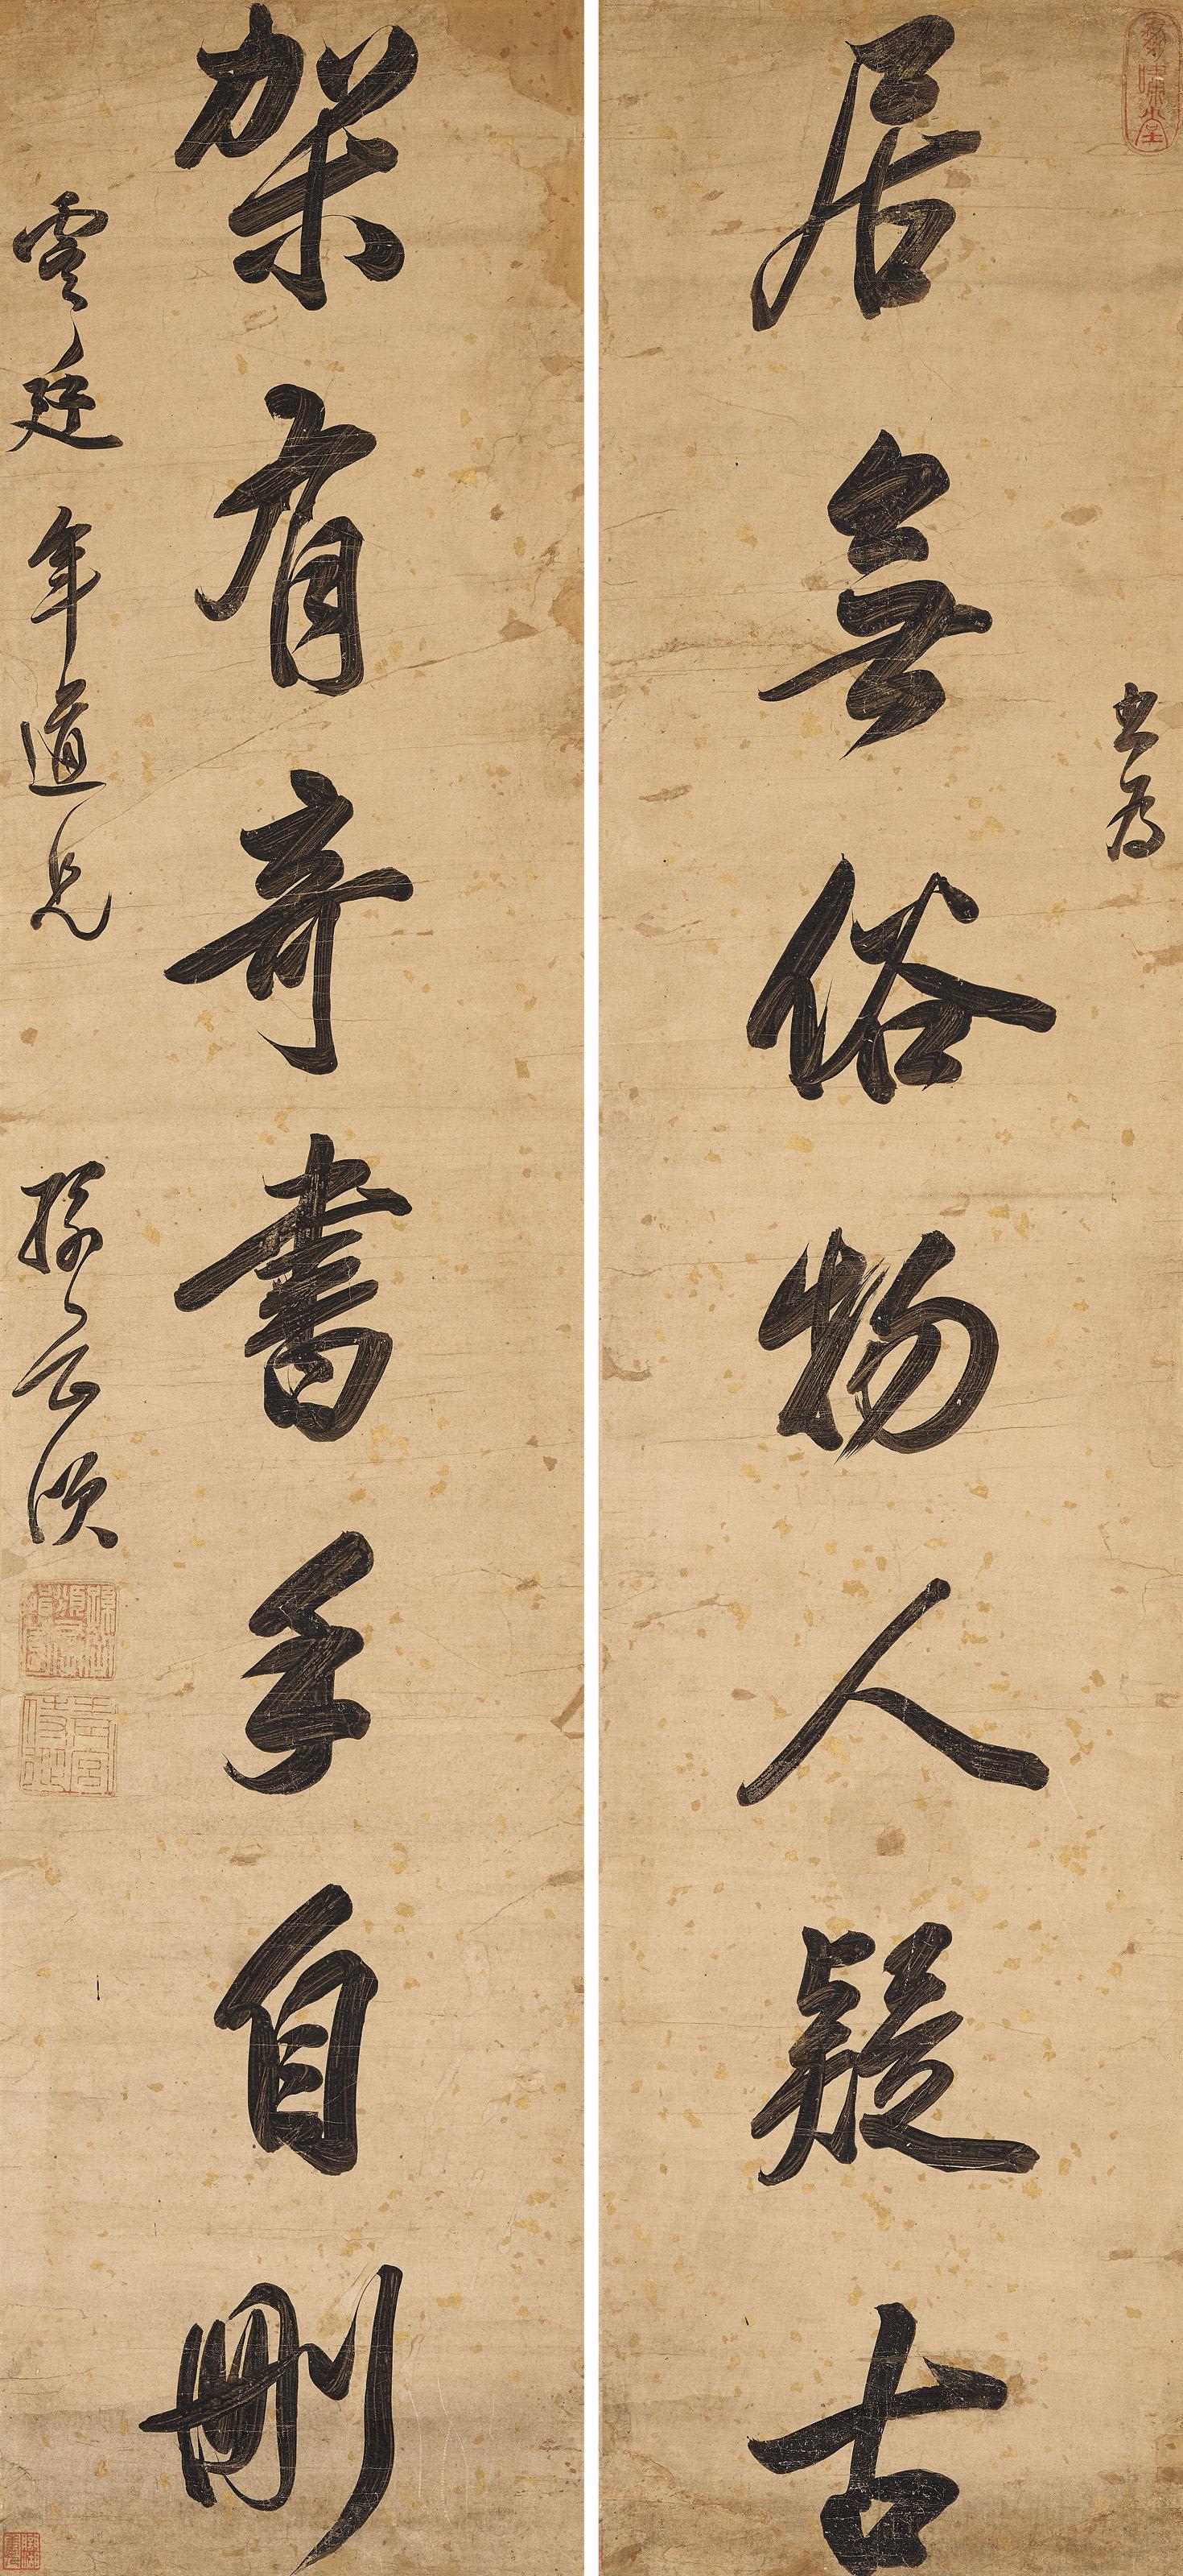 居無俗物人疑古
書為
架有奇書手自刪
雲廷年道兄
孫岳頒